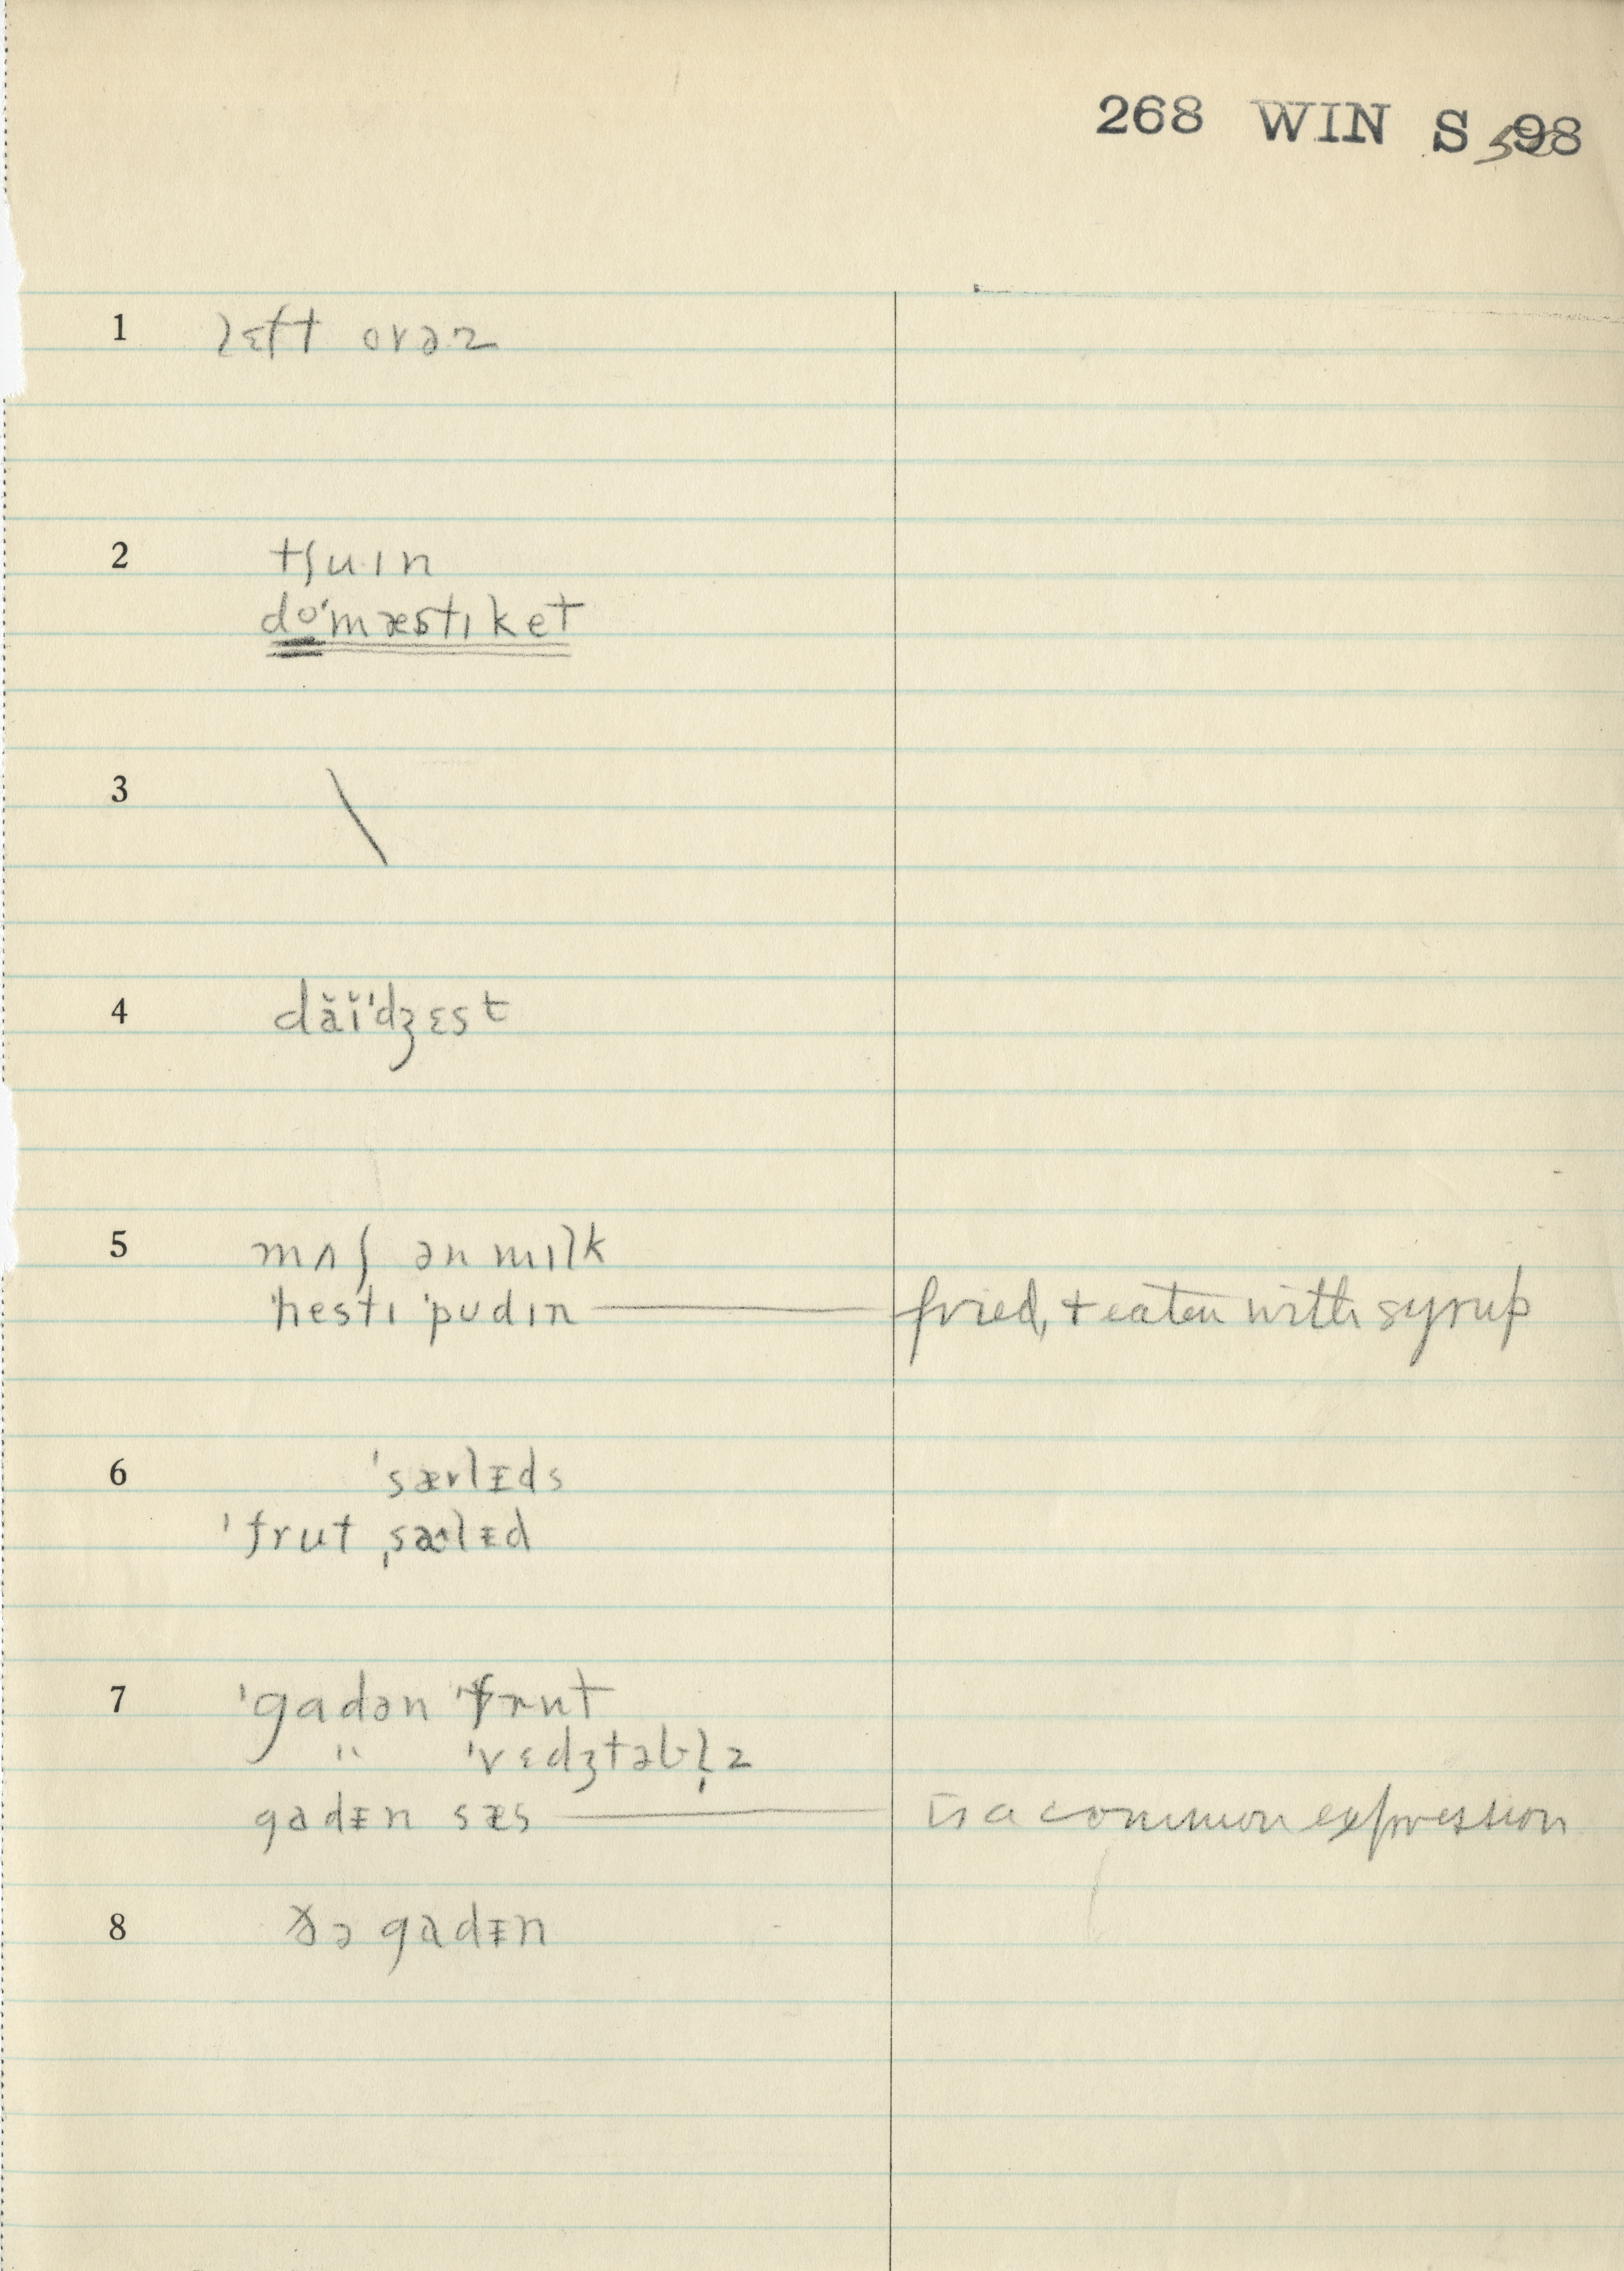 268 WIN S 598
1 lɛft ovəz
2 tʃuɪn
do'mæstɪket
3 \
4 dăĭ'dʒɛst
5 mʌʃ ən mɪlk
'hestɪ 'pudɪn — fried, + eaten with syrup
6 'særlᵻds
'frut ˌsælᵻd
7 'gadən 'frut
" 'vɛdʒtəbl̩z
gadᵻn sæs — is a common expression
8 ðə gadᵻn